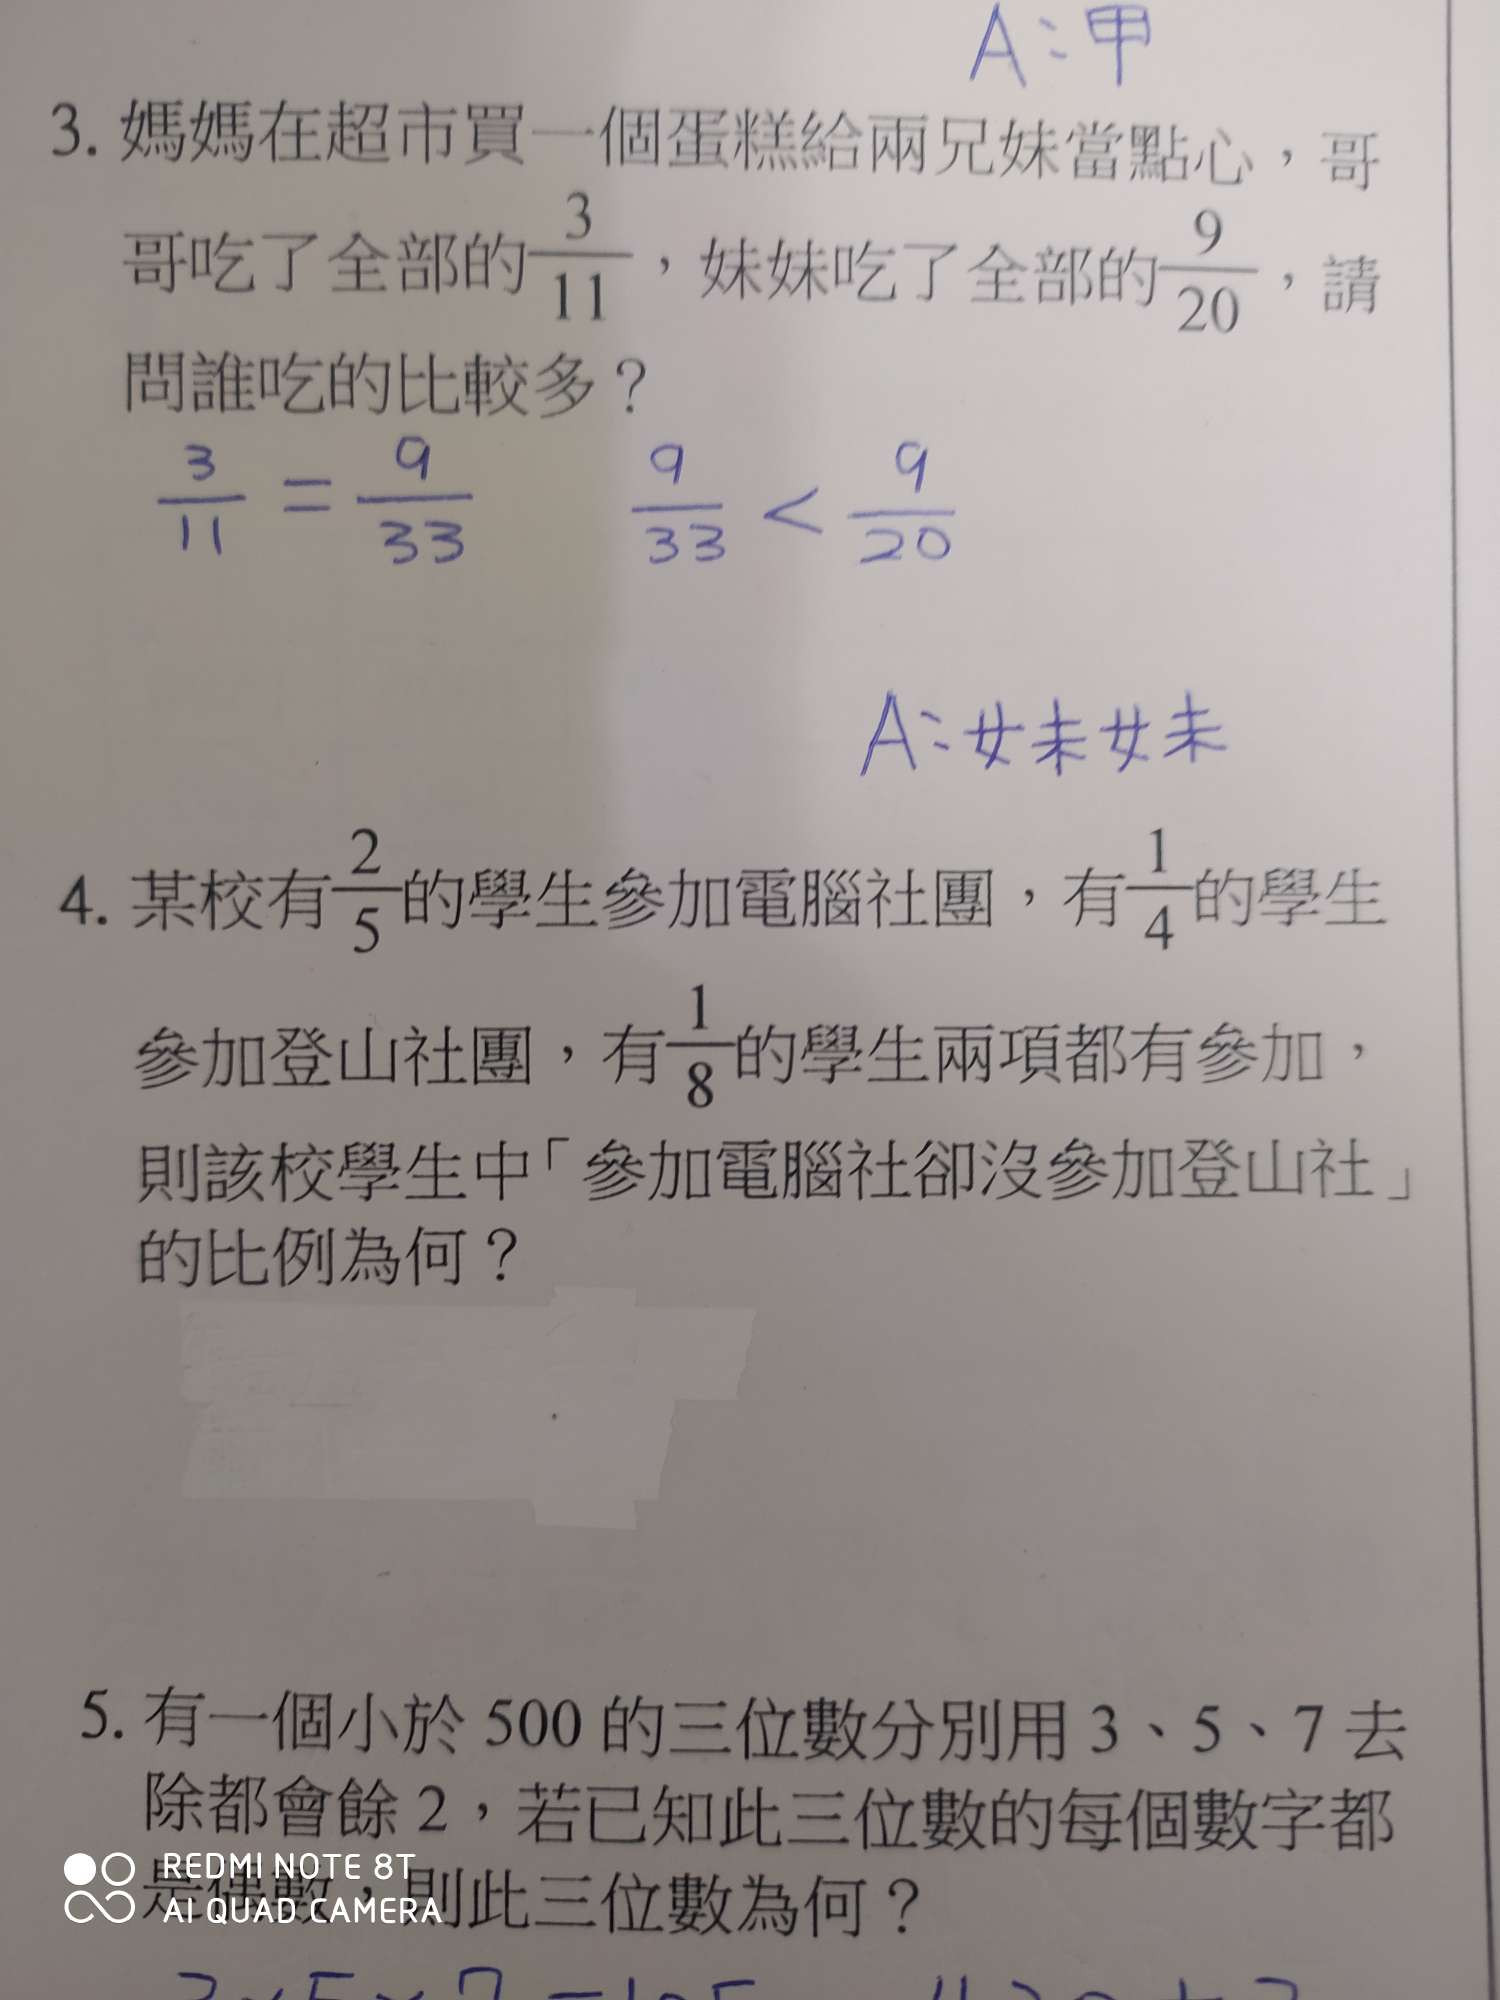 A：甲
3. 媽媽在超市買一個蛋糕給兩兄妹當點心，哥
哥吃了全部的3/11，妹妹吃了全部的9/20，請
問誰吃的比較多？
3/11 = 9/33  9/33 < 9/20
A：妹妹
4. 某校有2/5的學生參加電腦社團，有1/4的學生
參加登山社團，有1/8的學生兩項都有參加，
則該校學生中「參加電腦社卻沒參加登山社」
的比例為何？
5. 有一個小於 500 的三位數分別用 3、5、7 去
除都會餘 2，若已知此三位數的每個數字都
是偶數，則此三位數為何？
REDMI NOTE 8T
AI QUAD CAMERA
3×5×7=105